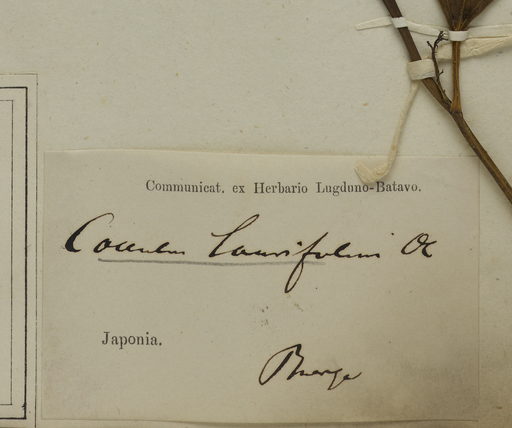 Communicat. ex Herbario Lugduno-Batavo.
Cocculus laurifolius DC
Japonia.
Buerger